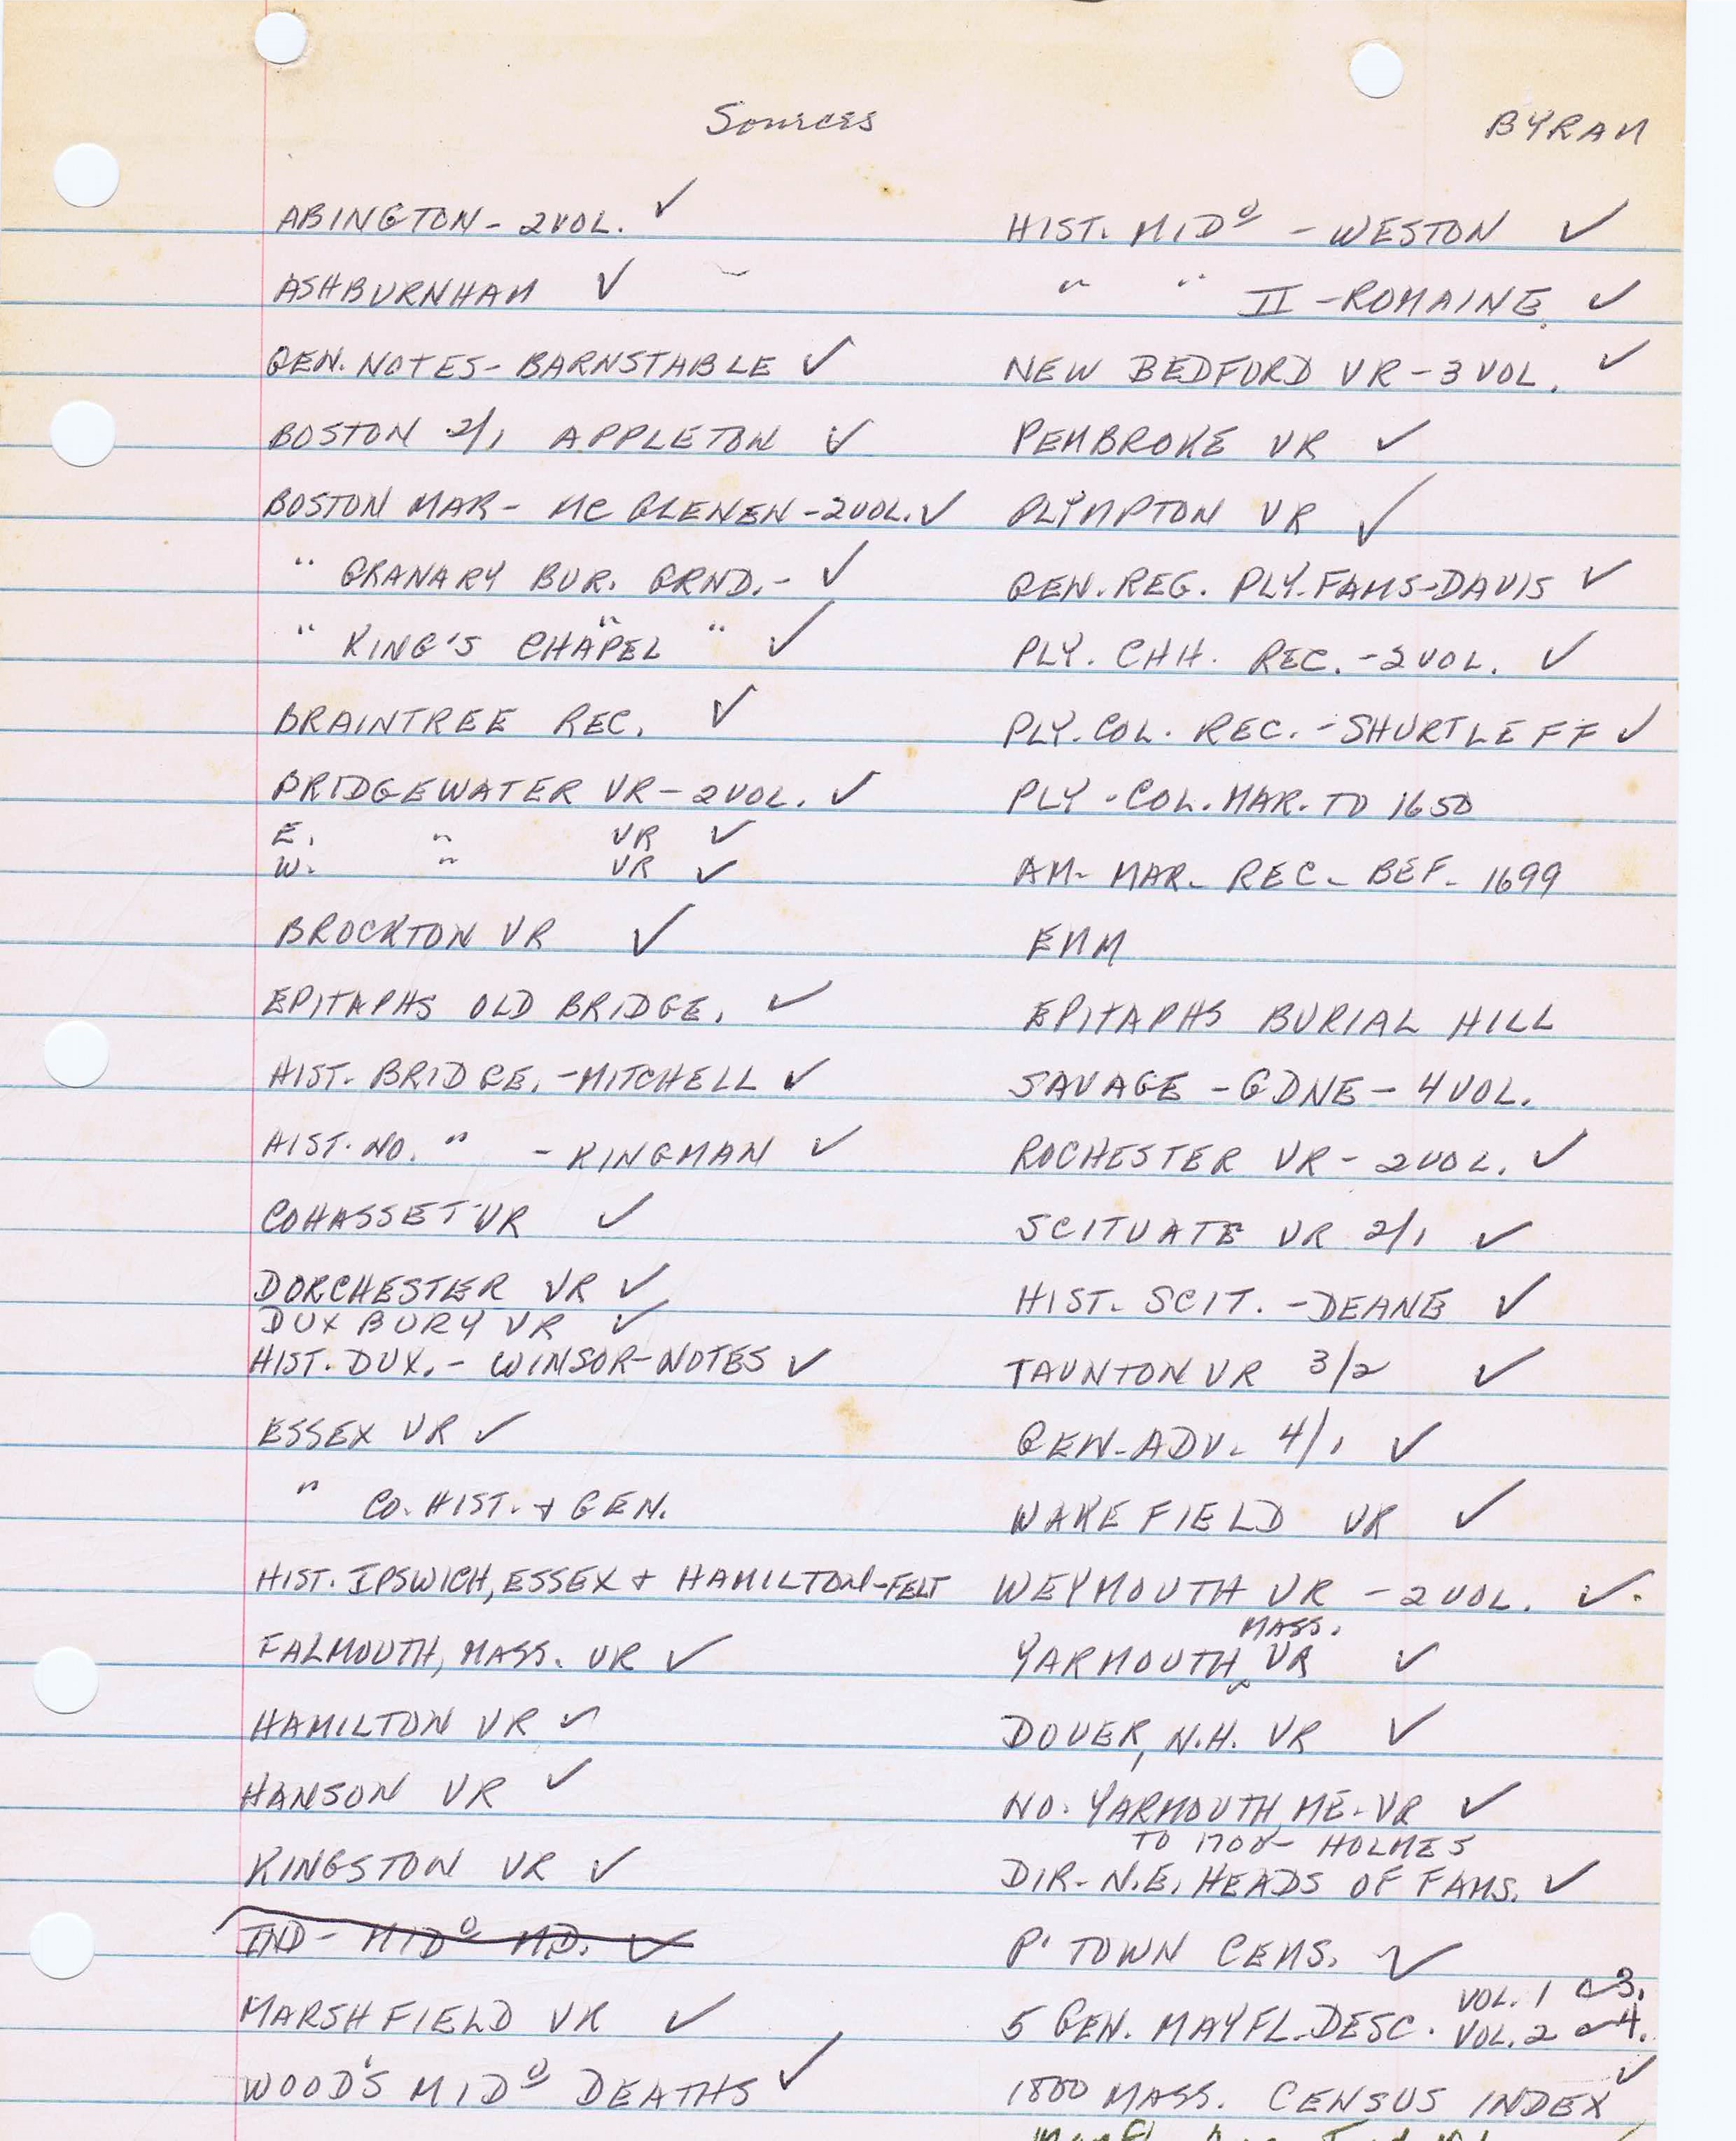 Sources
BYRAM
ABINGTON - 2 VOL. ✓
ASHBURNHAM ✓
GEN. NOTES - BARNSTABLE ✓
BOSTON 2/1 APPLETON ✓
BOSTON MAR - MC GLENEN - 2 VOL. ✓
" GRANARY BUR. GRND. - ✓
" KING'S CHAPEL " " ✓
BRAINTREE REC. ✓
BRIDGEWATER VR - 2 VOL. ✓
E. " VR ✓
W. " VR ✓
BROCKTON VR ✓
EPITAPHS OLD BRIDGE. ✓
HIST. BRIDGE. - MITCHELL ✓
HIST. NO. " - KINGMAN ✓
COHASSET VR ✓
DORCHESTER VR ✓
DUXBURY VR ✓
HIST. DUX. - WINSOR - NOTES ✓
ESSEX VR ✓
" CO. HIST. + GEN.
HIST. IPSWICH, ESSEX + HAMILTON - FELT
FALMOUTH, MASS. VR ✓
HAMILTON VR ✓
HANSON VR ✓
KINGSTON VR ✓
IND - MIDº MD. ✓
MARSHFIELD VR ✓
WOOD'S MIDº DEATHS ✓
HIST. MIDº - WESTON ✓
" " II - ROMAINE. ✓
NEW BEDFORD VR - 3 VOL. ✓
PEMBROKE VR ✓
PLYMPTON VR ✓
GEN. REG. PLY. FAMS - DAVIS ✓
PLY. CHH. REC. - 2 VOL. ✓
PLY. COL. REC. - SHURTLEFF ✓
PLY. COL. MAR. TO 1650
AM. MAR. REC. BEF. 1699
EMM
EPITAPHS BURIAL HILL
SAVAGE - GDNE - 4 VOL.
ROCHESTER VR - 2 VOL. ✓
SCITUATE VR 2/1 ✓
HIST. SCIT. - DEANE ✓
TAUNTON VR 3/2 ✓
GEN. ADV. 4/1 ✓
WAKEFIELD VR ✓
WEYMOUTH VR - 2 VOL. ✓.
MASS.
YARMOUTH, VR ✓
DOVER, N.H. VR ✓
NO. YARMOUTH, ME. VR ✓
TO 1700 - HOLMES
DIR. N.E. HEADS OF FAMS. ✓
P'TOWN CEMS. ✓
VOL. 1 3.
5 GEN. MAYFL. DESC. VOL. 2 4.
1800 MASS. CENSUS INDEX ✓